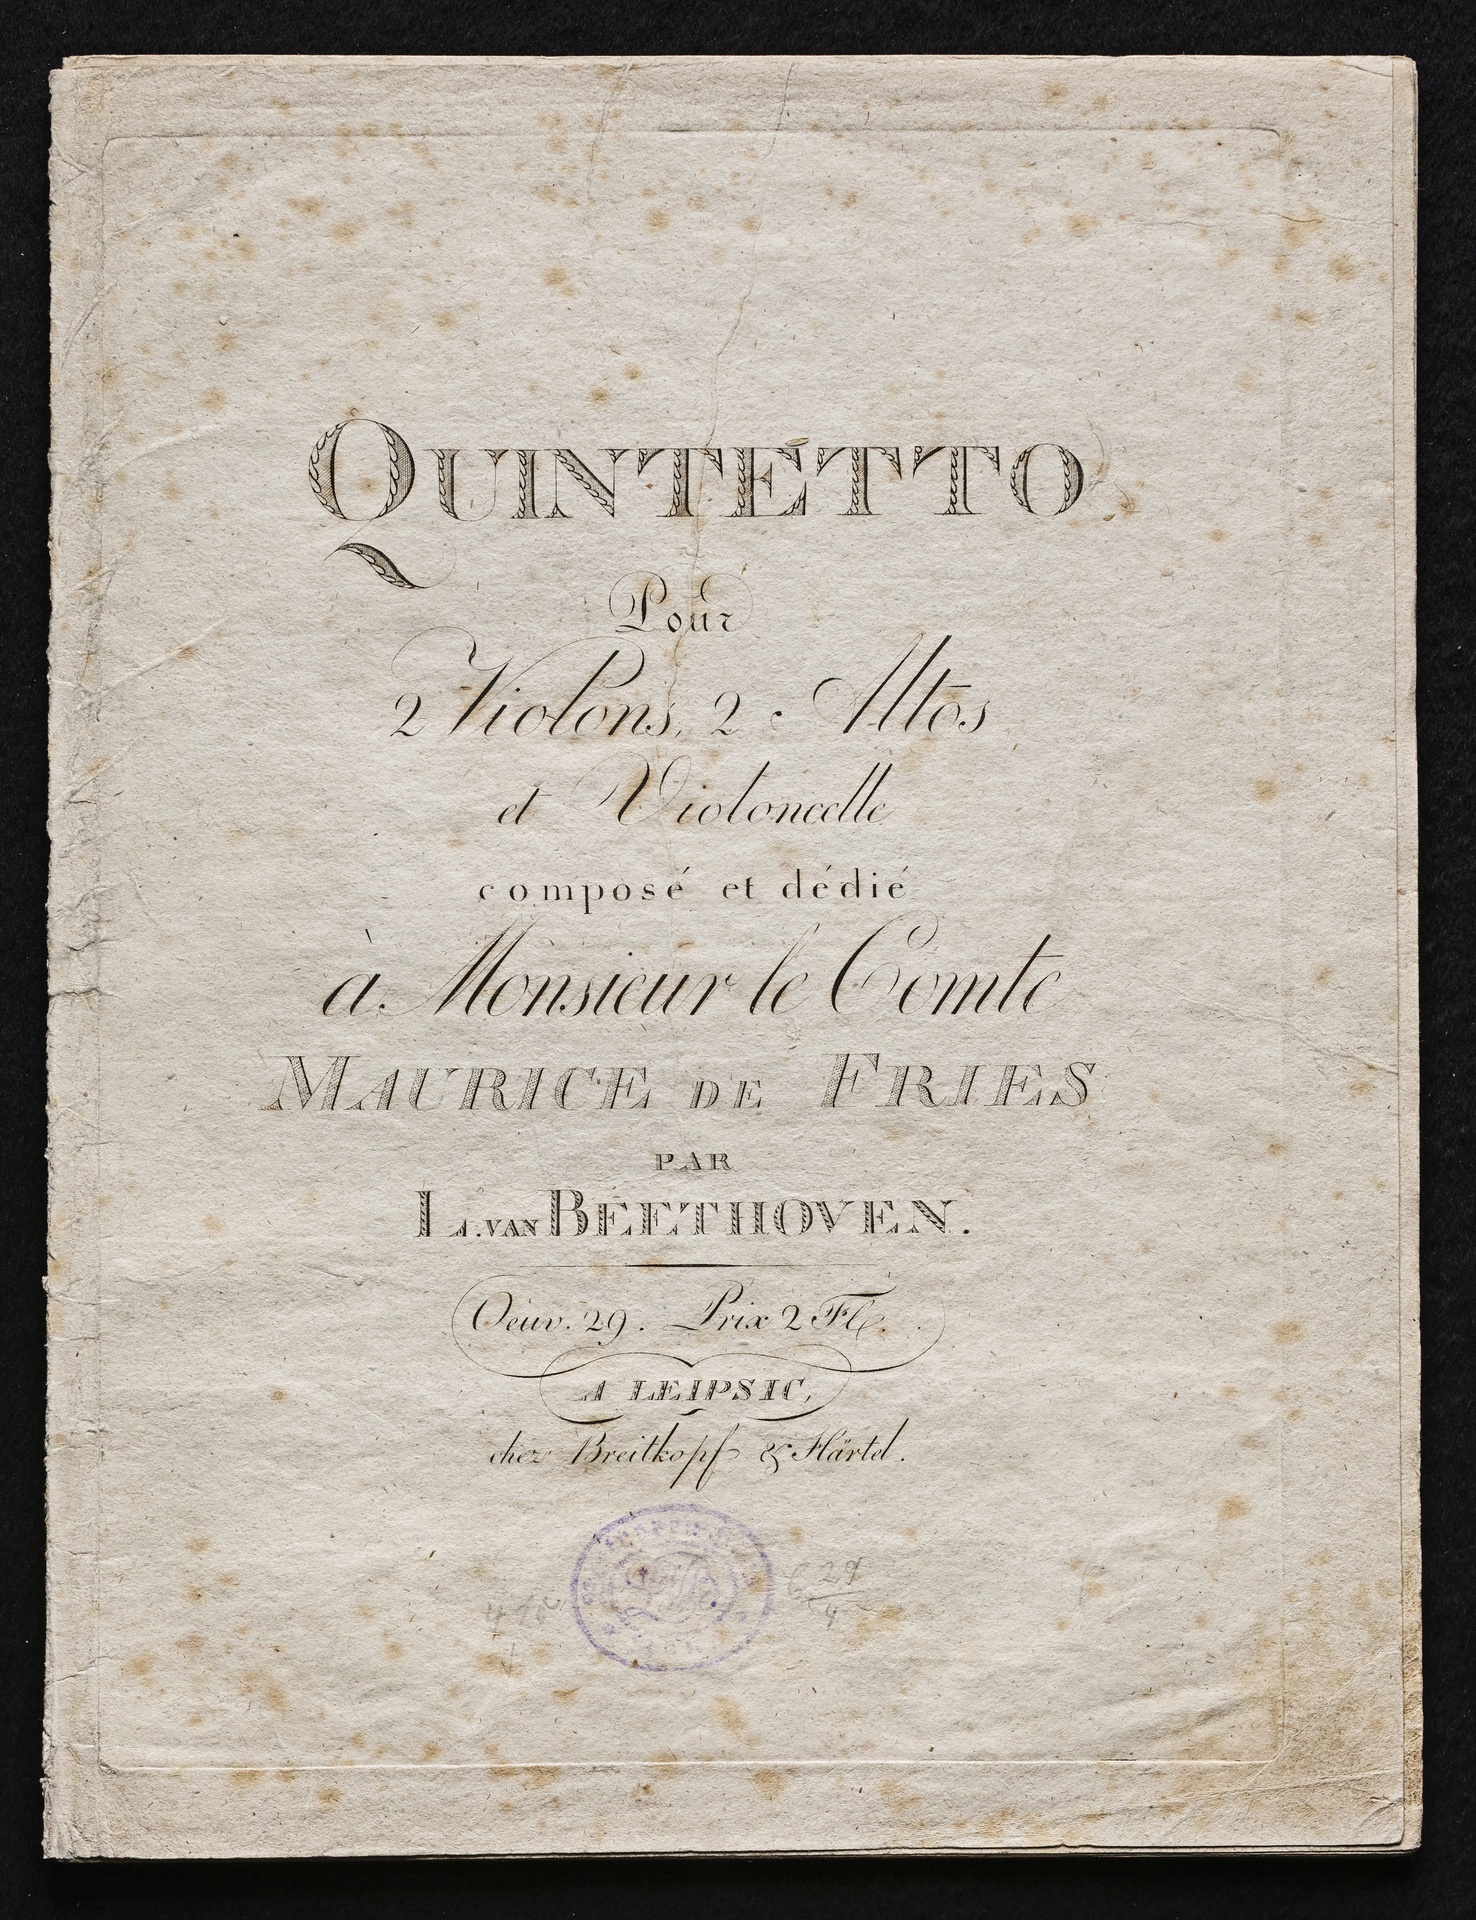 QUINTETTO
Pour
2 Violons, 2 Altos
et Violoncelle
composé et dédié
à Monsieur le Comte
MAURICE DE FRIES
PAR
L. VAN BEETHOVEN.
Oeuv. 29. Prix 2 Fl.
A LEIPSIC,
chez Breitkopf & Härtel.